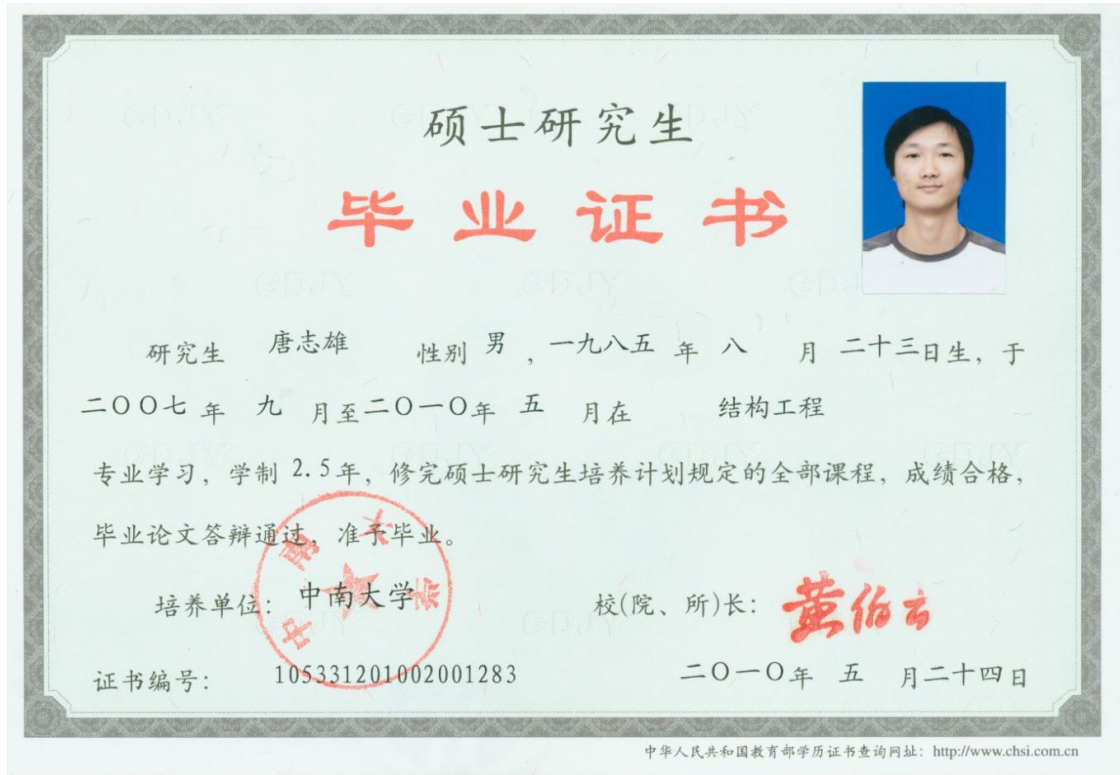 硕士研究生
毕业证书
研究生 唐志雄 性别 男 ，一九八五 年 八 月 二十三日生，于
二〇〇七 年 九 月至二〇一〇年 五 月在 结构工程
专业学习，学制 2.5年，修完硕士研究生培养计划规定的全部课程，成绩合格，
毕业论文答辩通过，准予毕业。
中南大学
培养单位：中南大学 校(院、所)长：黄伯云
证书编号： 105331201002001283 二〇一〇年 五 月二十四日
中华人民共和国教育部学历证书查询网址：http://www.chsi.com.cn